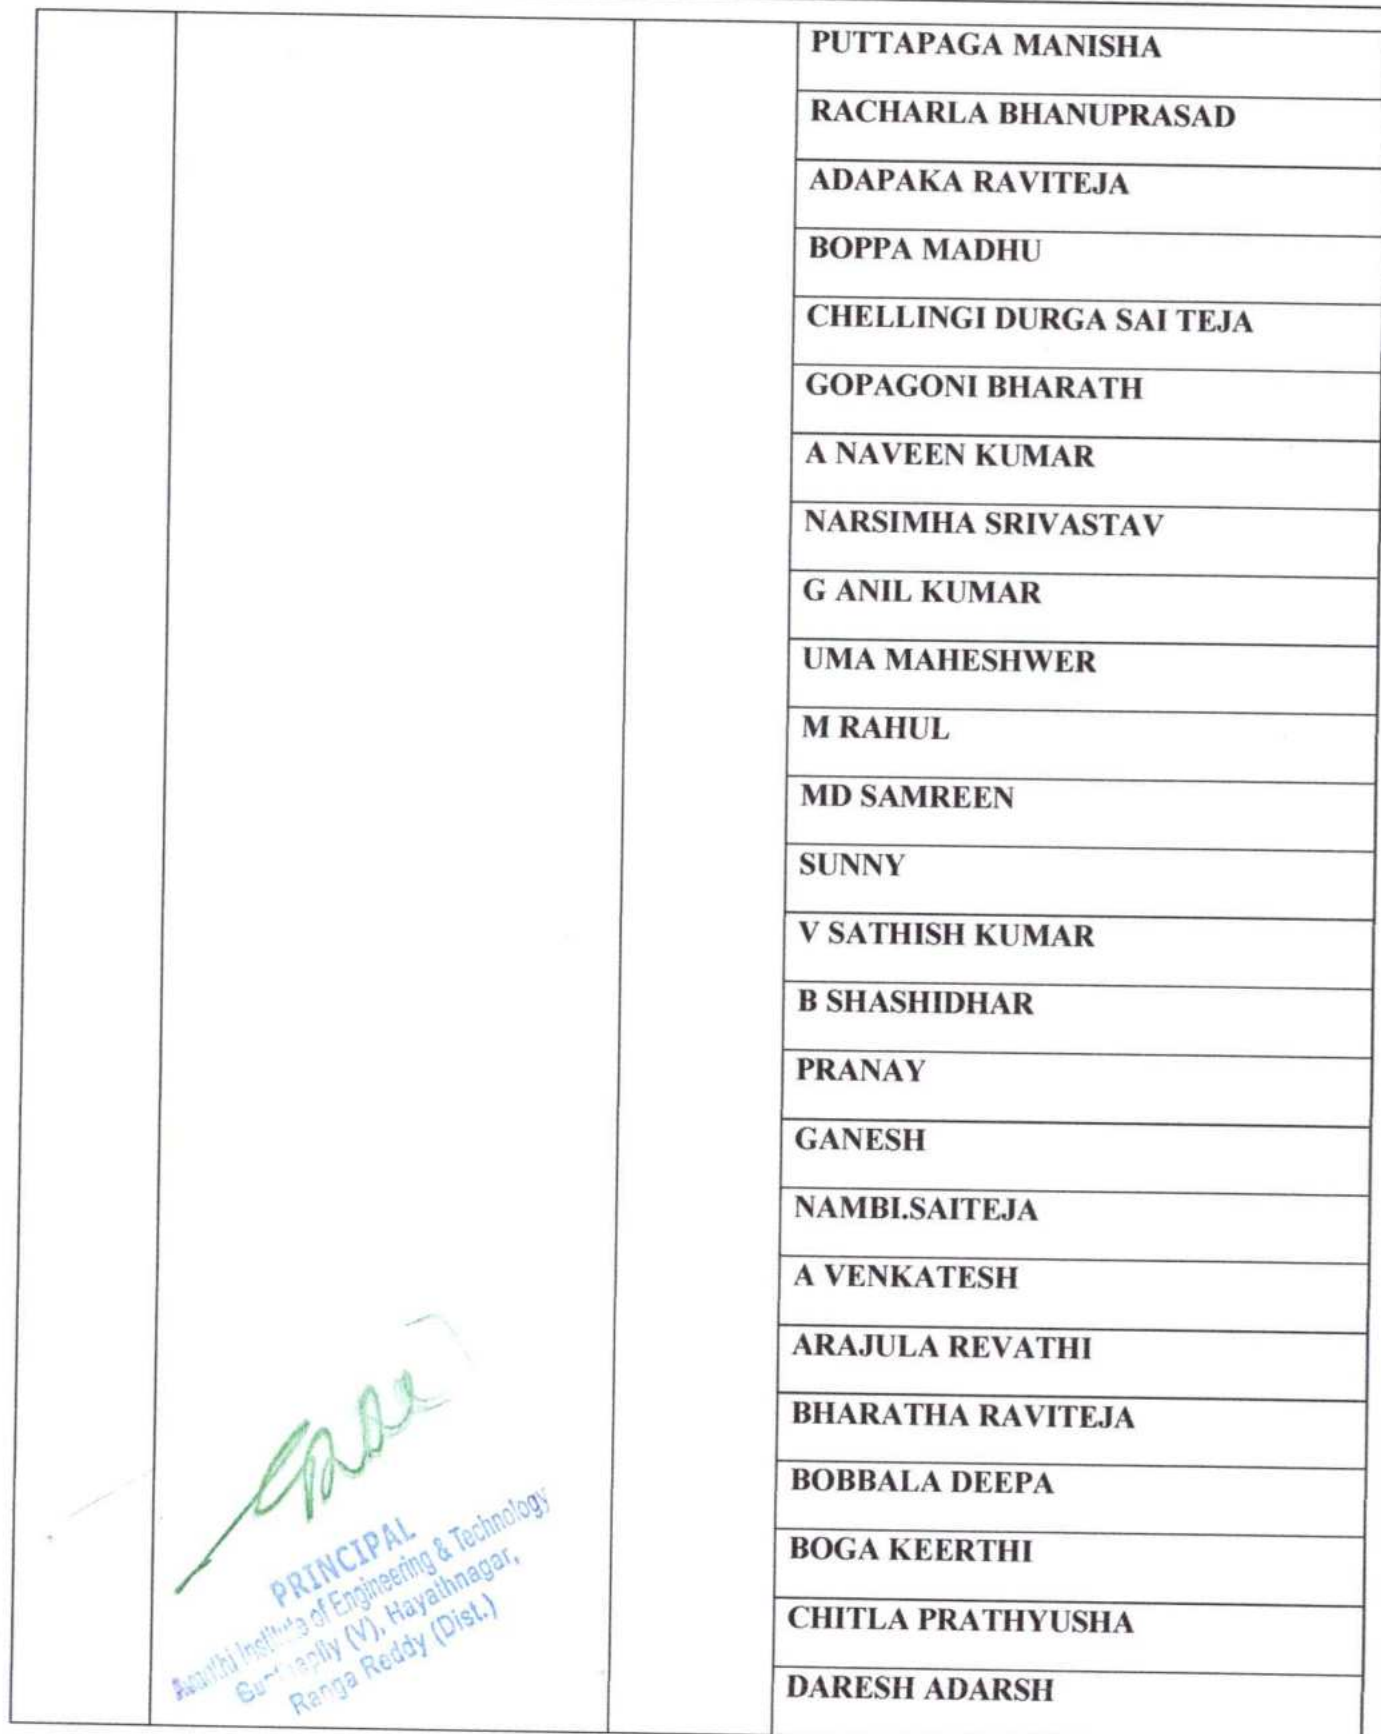 PUTTAPAGA MANISHA
RACHARLA BHANUPRASAD
ADAPAKA RAVITEJA
BOPPA MADHU
CHELLINGI DURGA SAI TEJA
GOPAGONI BHARATH
A NAVEEN KUMAR
NARSIMHA SRIVASTAV
G ANIL KUMAR
UMA MAHESHWER
M RAHUL
MD SAMREEN
SUNNY
V SATHISH KUMAR
B SHASHIDHAR
PRANAY
GANESH
NAMBI.SAITEJA
A VENKATESH
ARAJULA REVATHI
BHARATHA RAVITEJA
BOBBALA DEEPA
BOGA KEERTHI
CHITLA PRATHYUSHA
DARESH ADARSH
PRINCIPAL
Institute of Engineering & Technology
(V), Hayathnagar,
Ranga Reddy (Dist.)